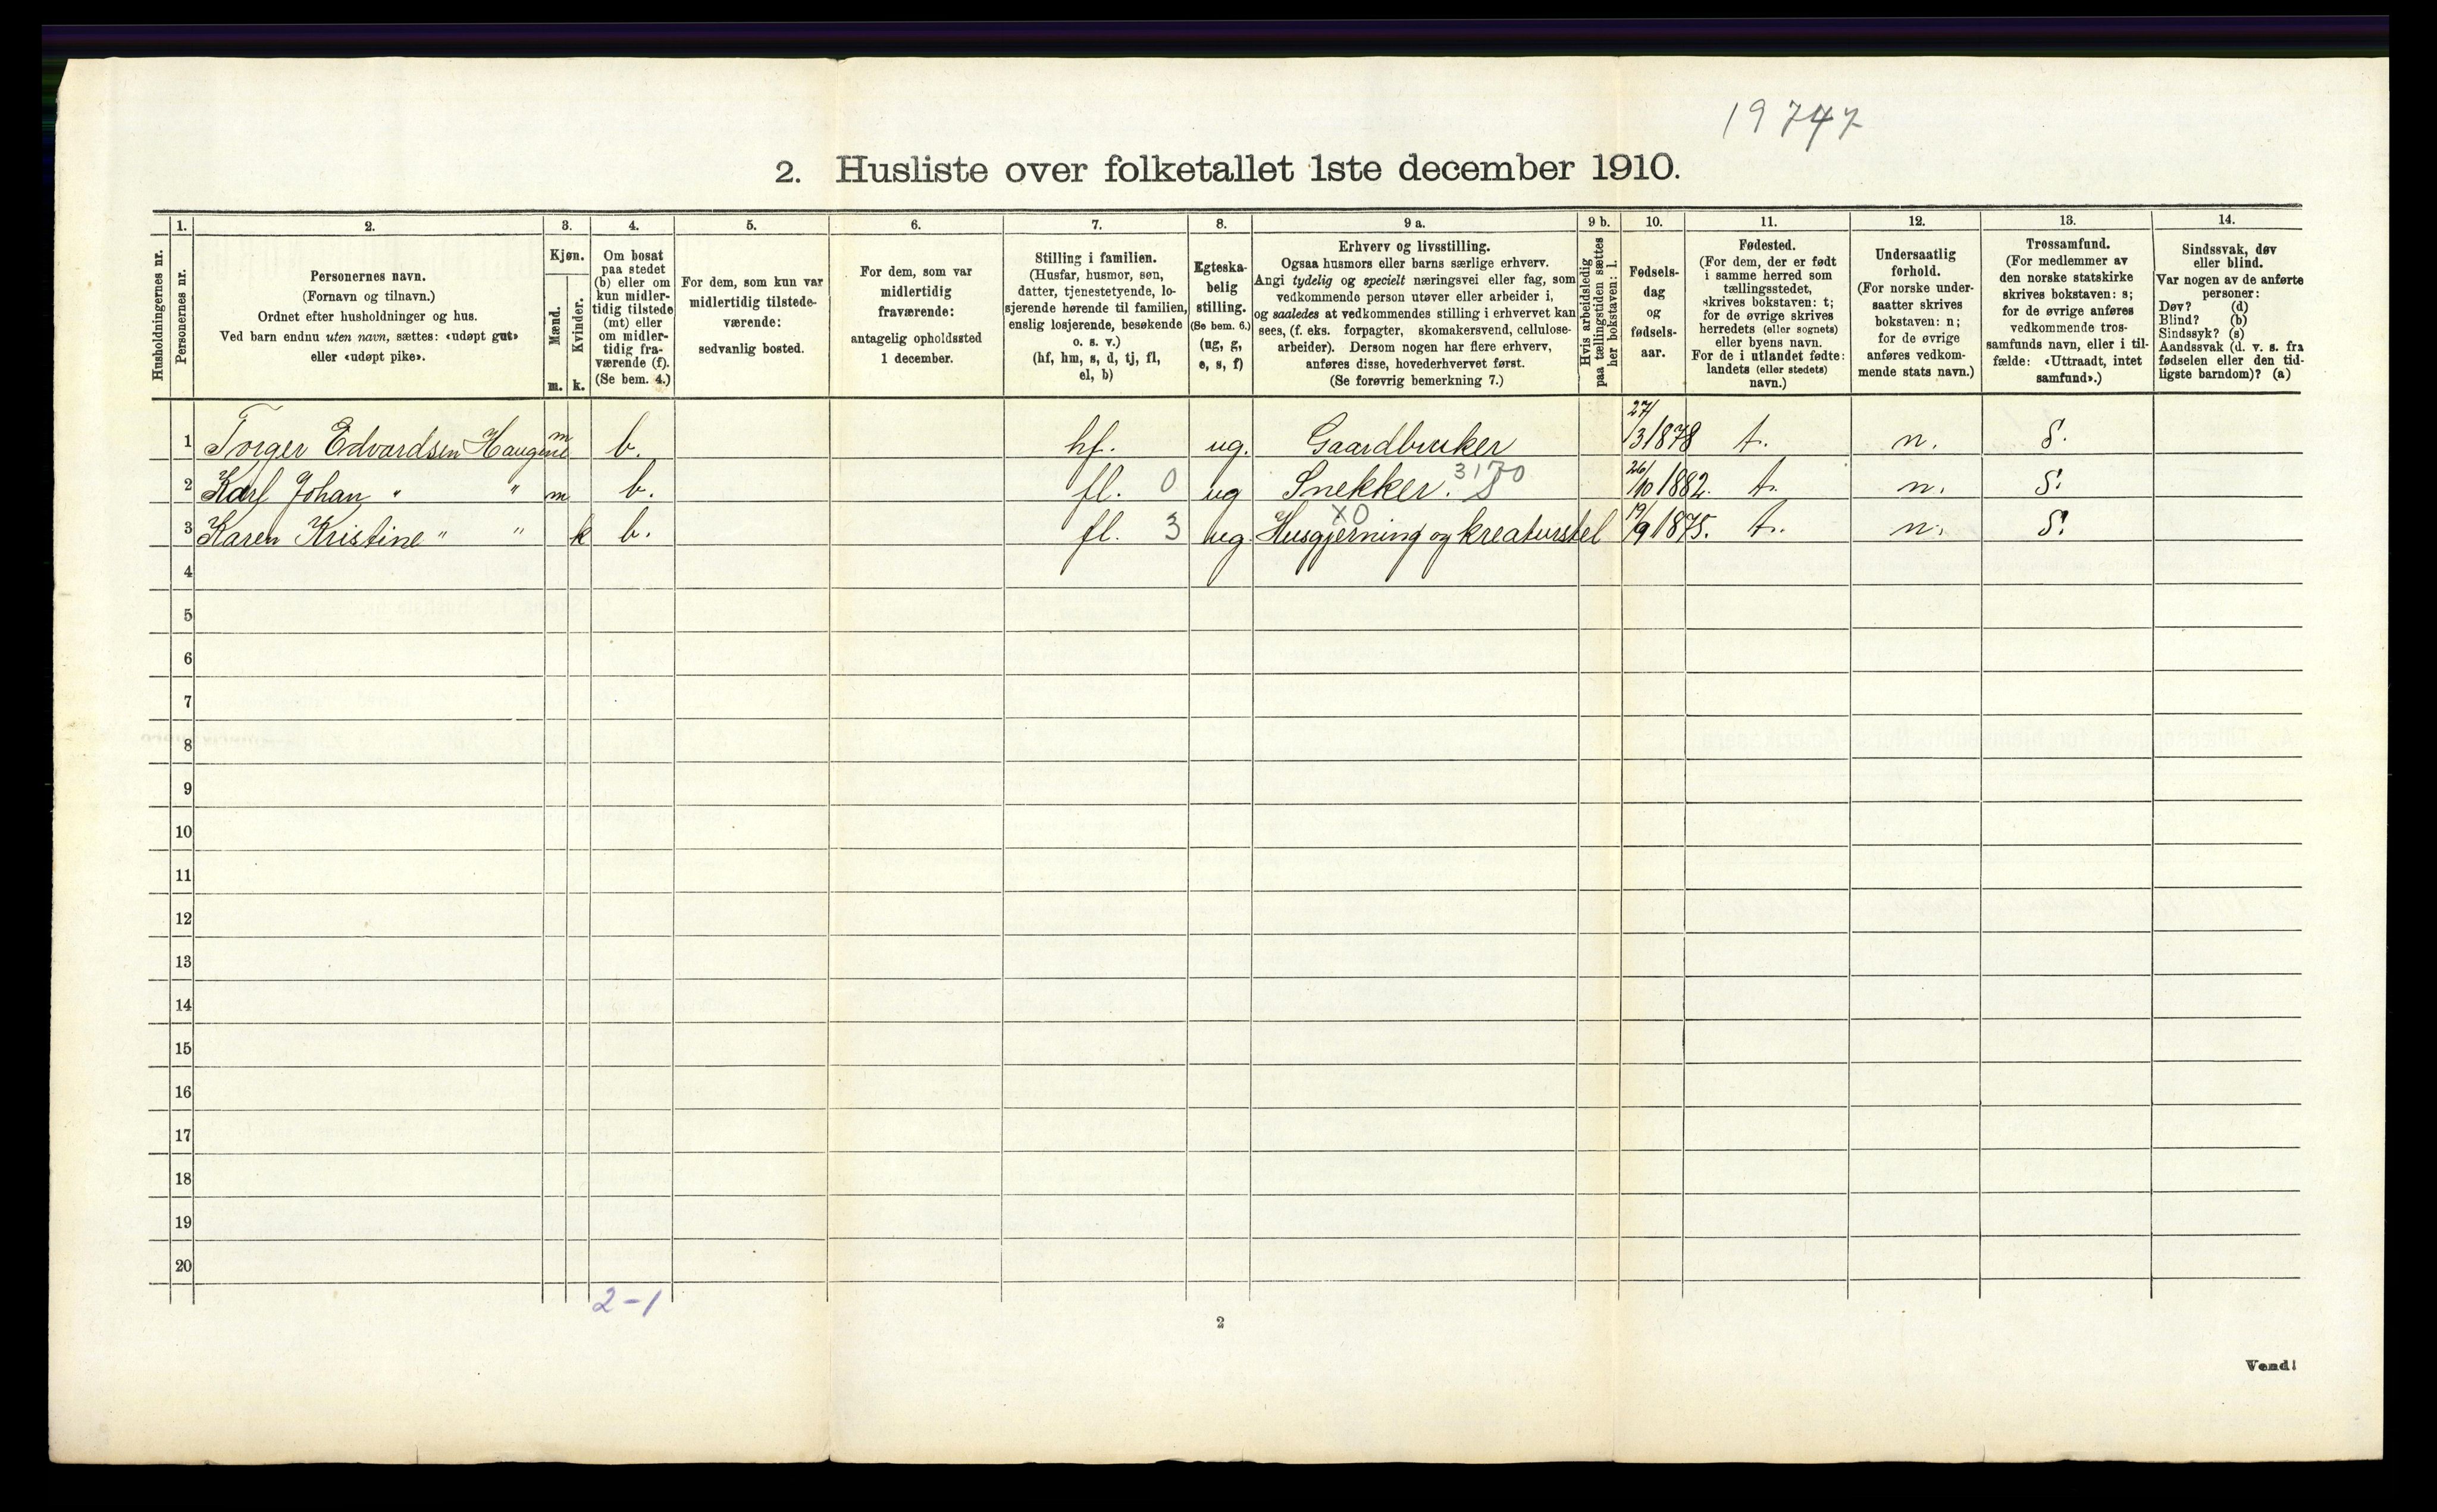 19747
2. Husliste over folketallet 1ste december 1910.
Husholdningernes nr.
1.
Personernes nr.
2.
Personernes navn.
(Fornavn og tilnavn.)
Ordnet efter husholdninger og hus.
Ved barn endnu uten navn, sættes: «udøpt gut»
eller «udøpt pike».
3.
Kjøn.
Mænd.
Kvinder.
m. k.
4.
Om bosat
paa stedet
(b) eller om
kun midler-
tidig tilstede
(mt) eller
om midler-
tidig fra-
værende (f).
(Se bem. 4.)
5.
For dem, som kun var
midlertidig tilstede-
værende:
sedvanlig bosted.
6.
For dem, som var
midlertidig
fraværende:
antagelig opholdssted
1 december.
7.
Stilling i familien.
(Husfar, husmor, søn,
datter, tjenestetyende, lo-
sjerende hørende til familien,
enslig losjerende, besøkende
o. s. v.)
(hf, hm, s, d, tj, fl,
el, b)
8.
Egteska-
belig
stilling.
(Se bem. 6.)
(ug, g,
e, s, f)
9 a.
Erhverv og livsstilling.
Ogsaa husmors eller barns særlige erhverv.
Angi tydelig og specielt næringsvei eller fag, som
vedkommende person utøver eller arbeider i,
og saaledes at vedkommendes stilling i erhvervet kan
sees, (f. eks. forpagter, skomakersvend, cellulose-
arbeider). Dersom nogen har flere erhverv,
anføres disse, hovederhvervet først.
(Se forøvrig bemerkning 7.)
9 b.
Hvis arbeidsledig
paa tællingstiden sættes
her bokstaven: l.
10.
Fødsels-
dag
og
fødsels-
aar.
11.
Fødested.
(For dem, der er født
i samme herred som
tællingsstedet,
skrives bokstaven: t;
for de øvrige skrives
herredets (eller sognets)
eller byens navn.
For de i utlandet fødte:
landets (eller stedets)
navn.)
12.
Undersaatlig
forhold.
(For norske under-
saatter skrives
bokstaven: n;
for de øvrige
anføres vedkom-
mende stats navn.)
13.
Trossamfund.
(For medlemmer av
den norske statskirke
skrives bokstaven: s;
for de øvrige anføres
vedkommende tros-
samfunds navn, eller i til-
fælde: «Uttraadt, intet
samfund».)
14.
Sindssvak, døv
eller blind.
Var nogen av de anførte
personer:
Døv? (d)
Blind? (b)
Sindssyk? (s)
Aandssvak (d. v. s. fra
fødselen eller den tid-
ligste barndom)? (a)
1 Torger Edvardsen Haugene m b. hf. ug. Gaardbruker 27/3 1878 t. n. S.
2 Karl Johan " " m b. fl. 0 ug Snekker. 3170 26/10 1882. t. n. S.
3 Karen Kristine " " k b. fl. 3 ug. Husgjerning og kreaturstel X0 19/9 1875. t. n. S.
4
5
6
7
8
9
10
11
12
13
14
15
16
17
18
19
20
2-1
2
Vend!